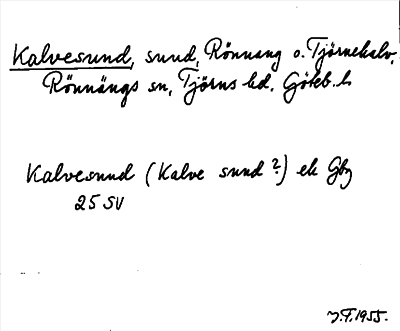 Kalvesund, sund, Rönnang o. Tjörnekalv,
Rönnängs sn, Tjörns hd. Göteb. l.
Kalvesund (Kalve sund ?) ek Gbg
25 SV
J.F. 1955.